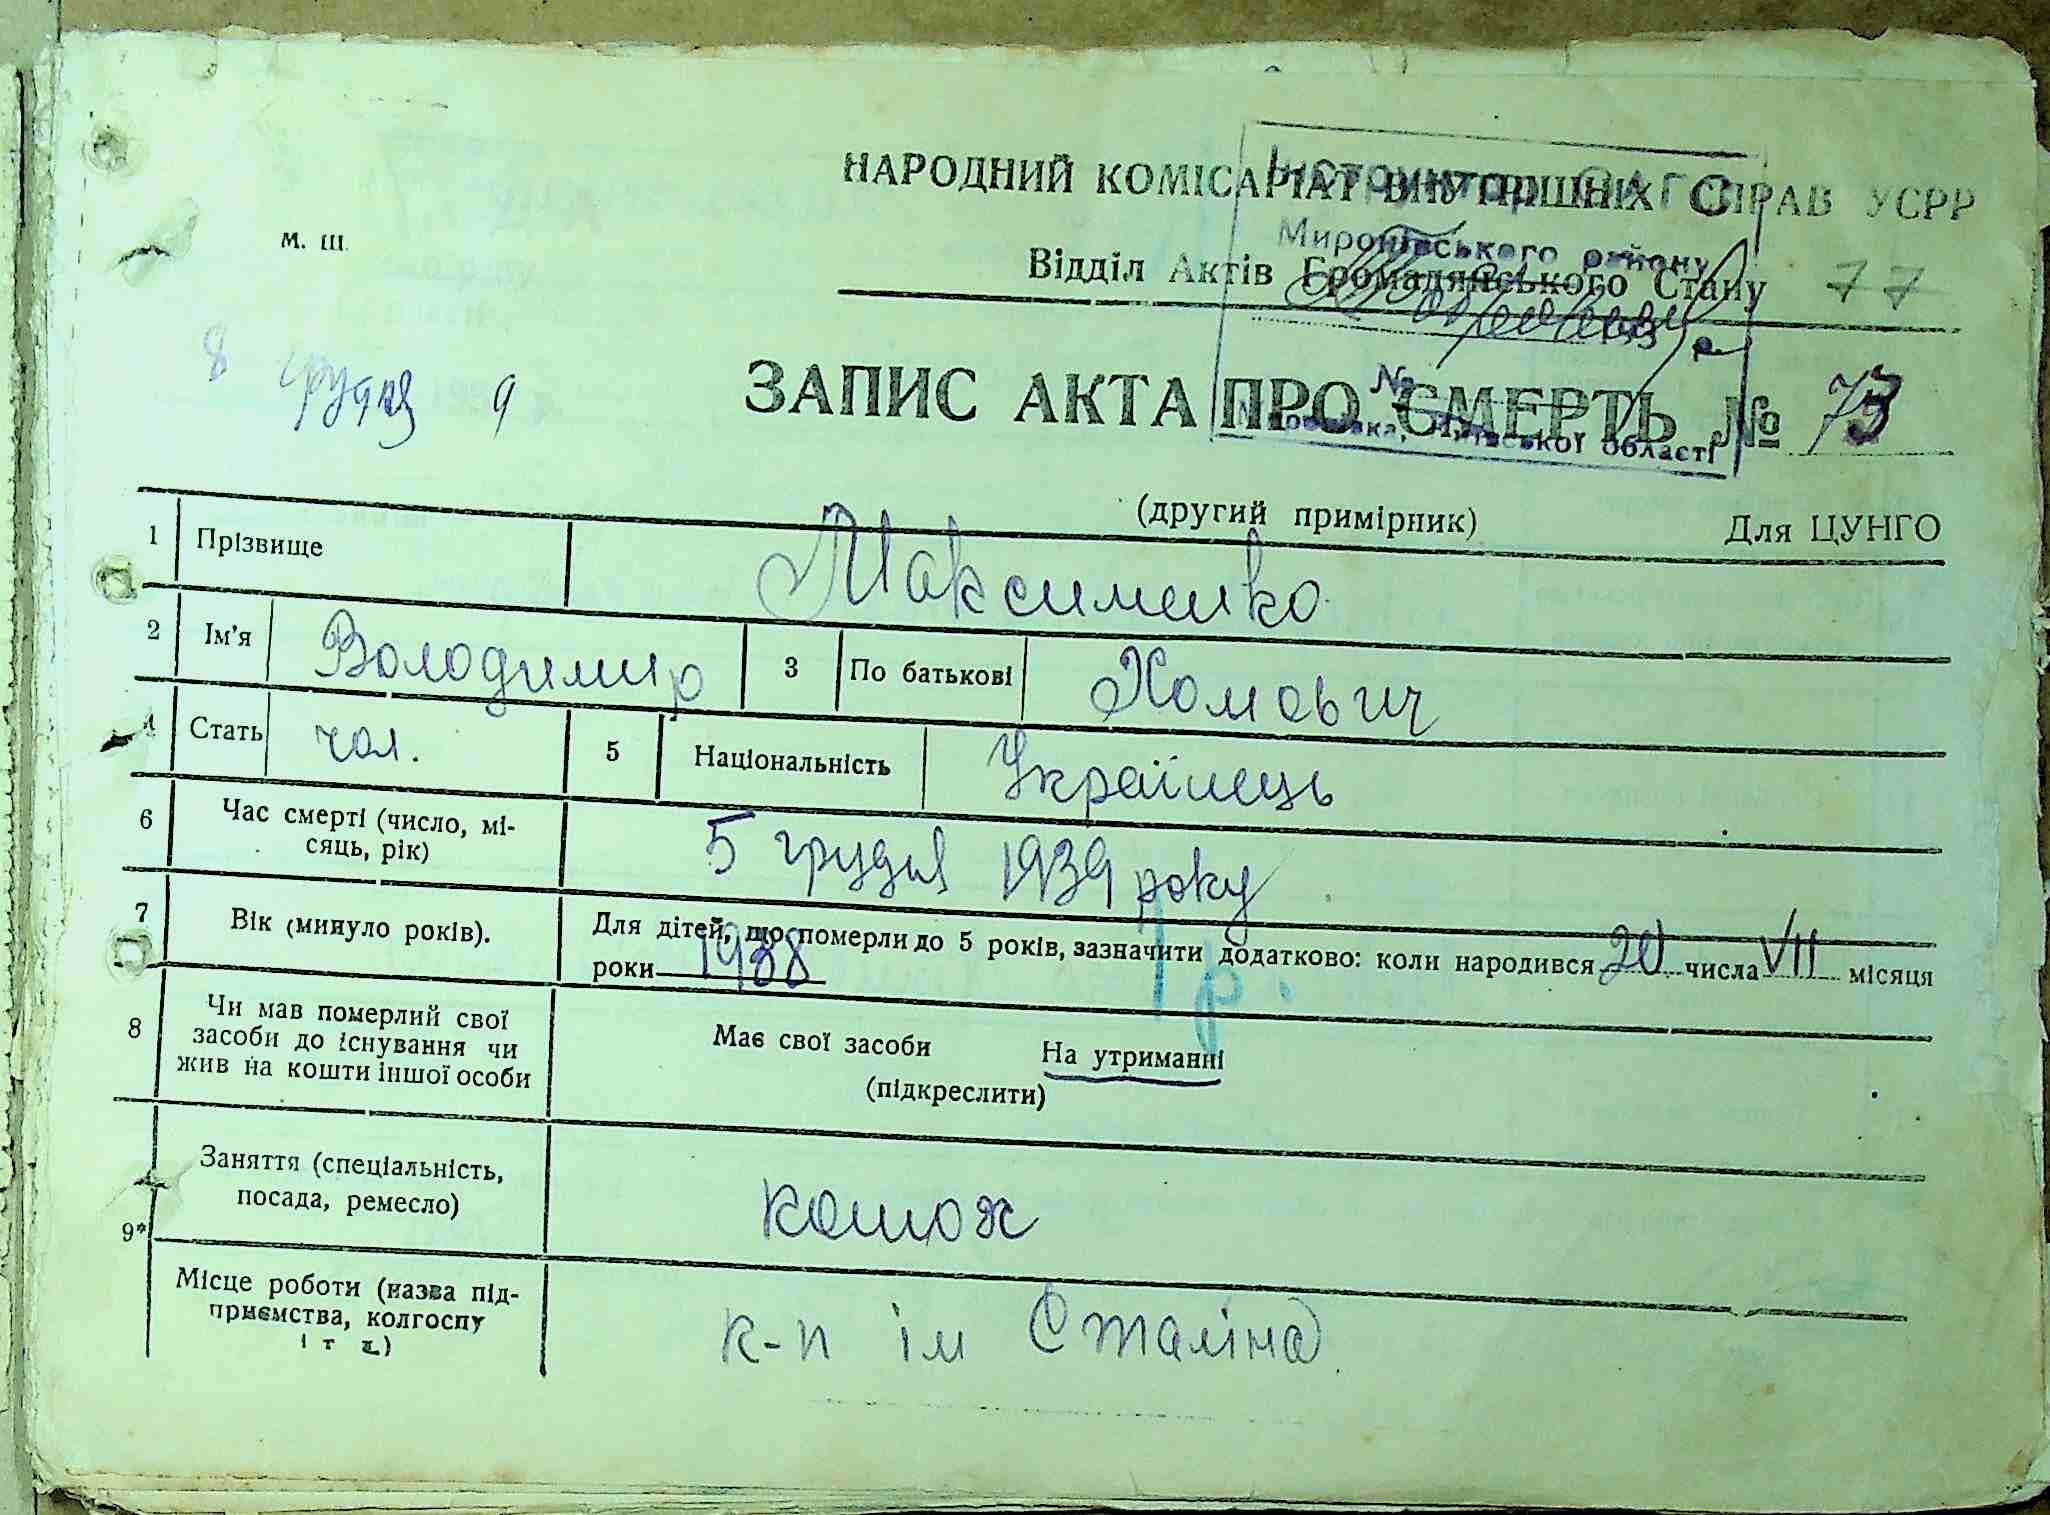 НАРОДНИЙ КОМІСАРІАТ ВНУТРІШНІХ СПРАВ УСРР
Інструктор ЗАГС
Миронівського району
м. ш.
Відділ Актів Громадянського Стану 77
193 р.
№
8 грудня 9
ЗАПИС АКТА ПРО СМЕРТЬ № 73
Миронівка, Київської області
(другий примірник) Для ЦУНГО
1 Прізвище Максименко
2 Ім'я Володимир 3 По батькові Хомович
4 Стать чол. 5 Національність Українець
6 Час смерті (число, мі-
сяць, рік) 5 грудня 1939 року
7 Вік (минуло років). Для дітей, що померли до 5 років, зазначити додатково: коли народився 20 числа VII місяця
роки 1938 1 р.
8 Чи мав померлий свої
засоби до існування чи
жив на кошти іншої особи
Має свої засоби На утриманні
(підкреслити)
9* Заняття (спеціальність,
посада, ремесло) колгосп
Місце роботи (назва під-
приємства, колгоспу
і т д.) к-п ім Сталіна